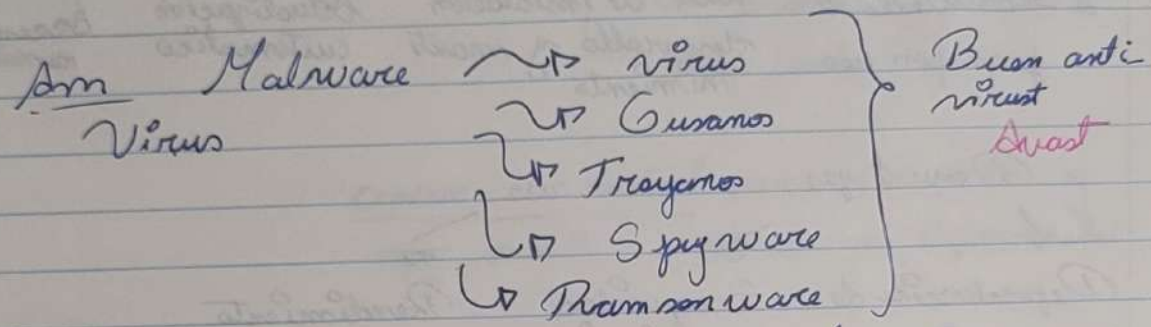 Am Malware → virus
Virus
↳ Gusanos
↳ Troyanos
↳ Spyware
↳ Ramsonware
Buen anti
virust
Avast